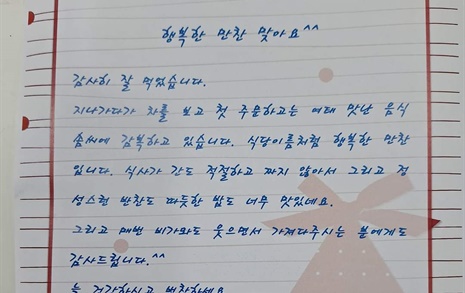 행복한 만찬 맞아요^^
감사히 잘 먹었습니다.
지나가다가 차를 보고 첫 주문하고는 여태 맛난 음식
솜씨에 감복하고 있습니다. 식당이름처럼 행복한 만찬
입니다. 식사가 간도 적절하고 짜지 않아서 그리고 정
성스런 반찬도 따뜻한 밥도 너무 맛있네요.
그리고 매번 비가와도 웃으면서 가져다주시는 분에게도
감사드립니다.^^
늘 건강하시고 번창하세요